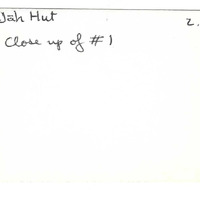 Jah Hut
2.
Close up of #1